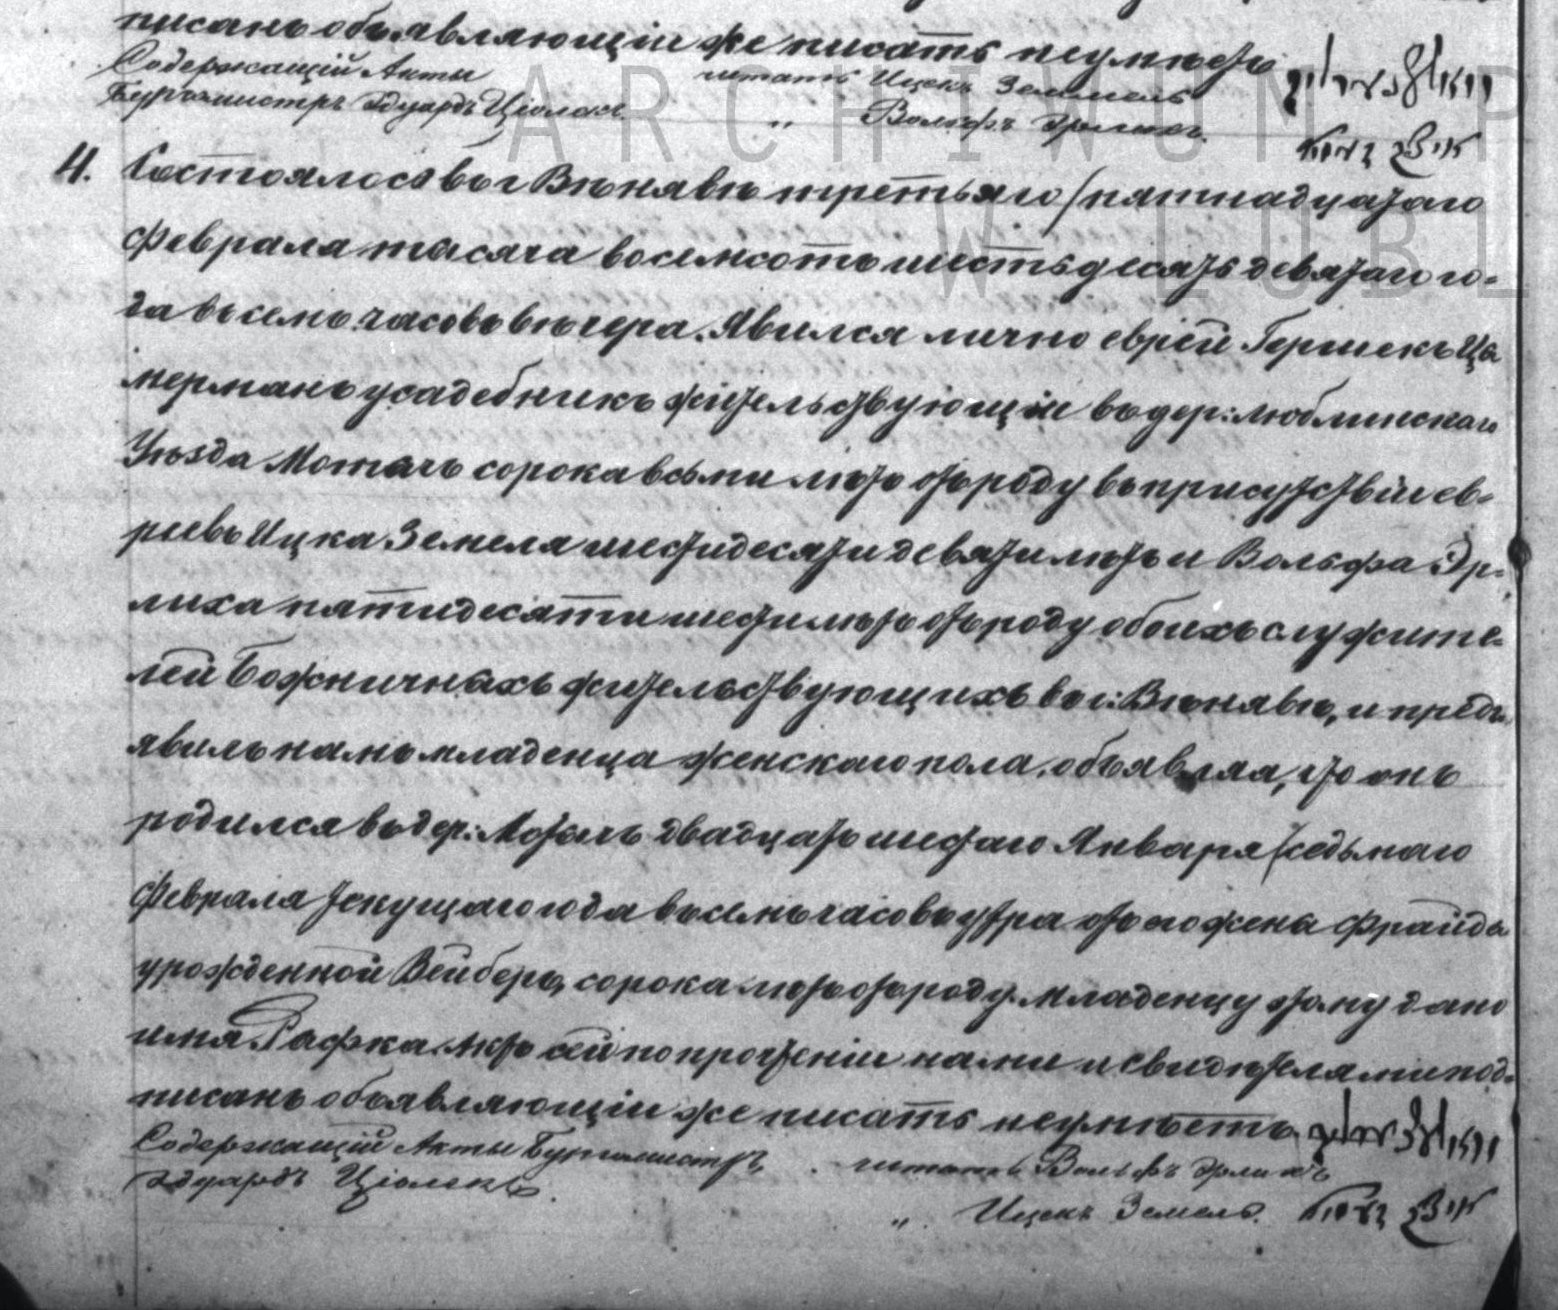 писанъ объявляющій же писать неумѣетъ
Содержащій Акты читать Ицекъ Земель
Бургомистръ Эдуардъ Ціолекъ „ Вольфъ Эрлихъ
4. Состоялось въ г Вѣнявѣ третьяго /пятнадцатаго
Февраля тысяча восемсотъ шестьдесятъ девятаго го-
да въ семь часовъ вѣчера. Явился лично еврей Гершекъ Ци
мерманъ усадебникъ жительствующій въ дер: Люблинскаго
Уѣзда Мотычъ сорока восьми лѣтъ отъ роду въ присутствіи ев-
реевъ Ицка Земеля шестидесяти девяти лѣтъ и Вольфа Эр-
лиха пятидесяти шести лѣтъ отъ роду обоихъ служите-
лей Божничныхъ жительствующихъ въ г: Вѣнявѣ, и предъ
явилъ намъ младенца женскаго пола, объявляя, что онъ
родился въ дер: Мотычъ двадцать шестаго Января /седьмаго
Февраля текущаго года въ семь часовъ утра отъ его жены Фрайды
урожденной Вейберъ, сорока лѣтъ отъ роду. Младенцу этому дано
имя Рафка. Актъ сей по прочтеніи нами и свидѣтелями под-
писанъ объявляющій же писать неумѣетъ.
Содержащій Акты Бургомистръ читать Вольфъ Эрлихъ
Эдуардъ Ціолекъ. „ Ицекъ Земель.
ARCHIWUM P
W LUBL